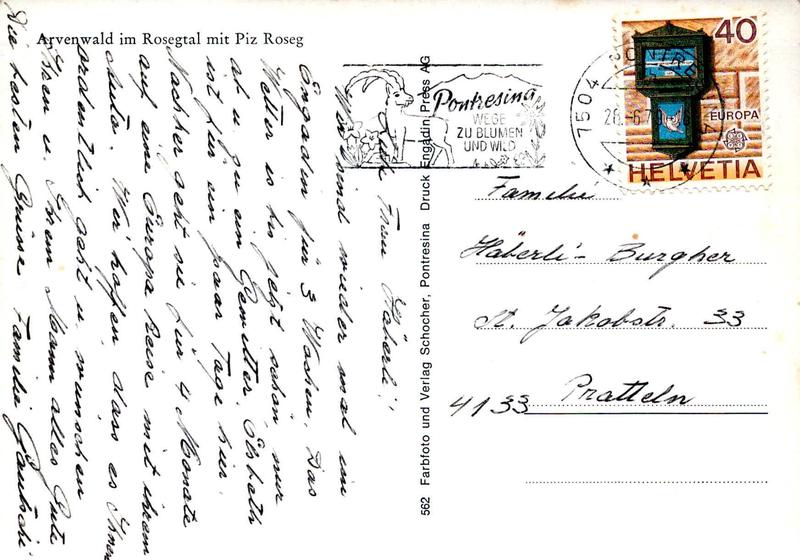 Arvenwald im Rosegtal mit Piz Roseg
Liebe Frau Häberli!
Wir sind wieder mal im
Engadin für 3 Wochen. Das
Wetter ist bis jetzt schön nur
ab u. zu ein Gewitter. Elsbeth
ist für ein paar Tage hier.
Nachher geht sie für 4 Monate
auf eine Europa Reise mit ihrem
Wir hoffen, dass es Ihnen
ordentlich geht u. wünschen
Ihnen u. Ihrem Mann alles Gute
Die besten Grüsse Familie Gautschi
562 Farbfoto und Verlag Schocher, Pontresina Druck Engadin Press AG
Pontresina
WEGE
ZU BLUMEN
UND WILD
7504
40
EUROPA
HELVETIA
Familie
Häberli-Burgher
St. Jakobstr. 33
4133 Pratteln